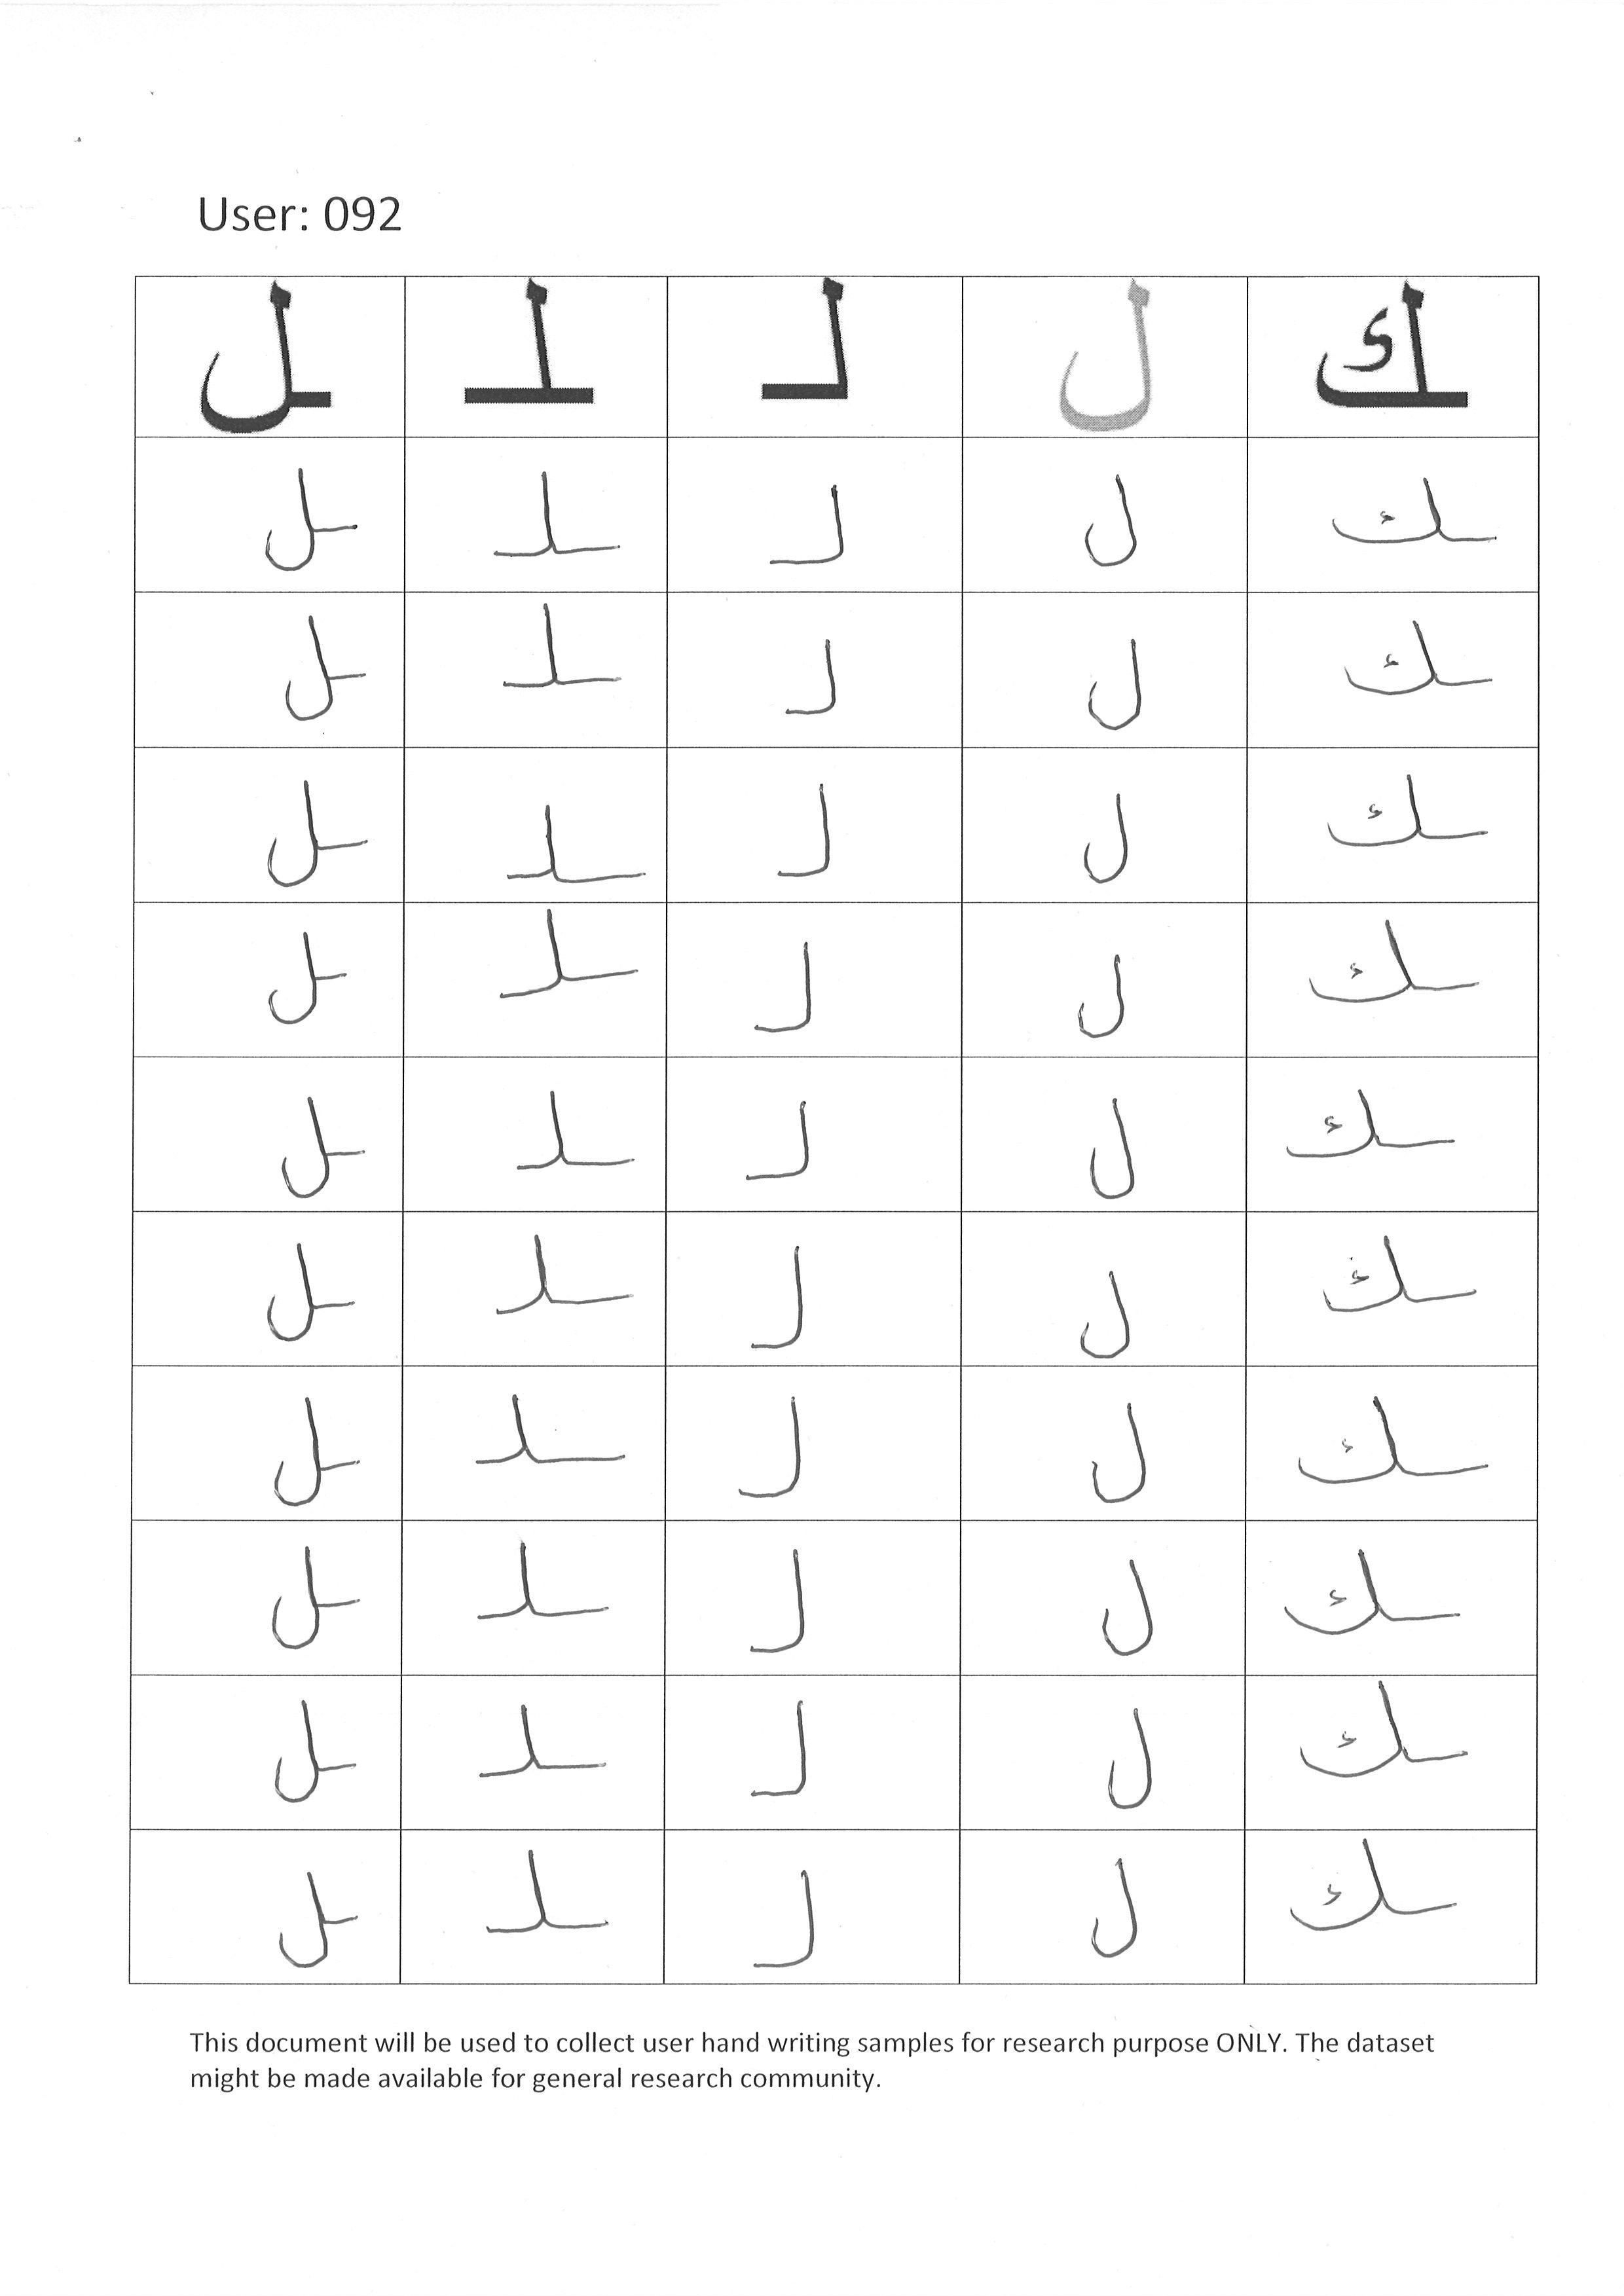 User: 092
ك ل لـ ـلـ ـل
ـك ل لـ ـلـ ـل
ـك ل لـ ـلـ ـل
ـك ل لـ ـلـ ـل
ـك ل لـ ـلـ ـل
ـك ل لـ ـلـ ـل
ـك ل لـ ـلـ ـل
ـك ل لـ ـلـ ـل
ـك ل لـ ـلـ ـل
ـك ل لـ ـلـ ـل
ـك ل لـ ـلـ ـل
This document will be used to collect user hand writing samples for research purpose ONLY. The dataset
might be made available for general research community.